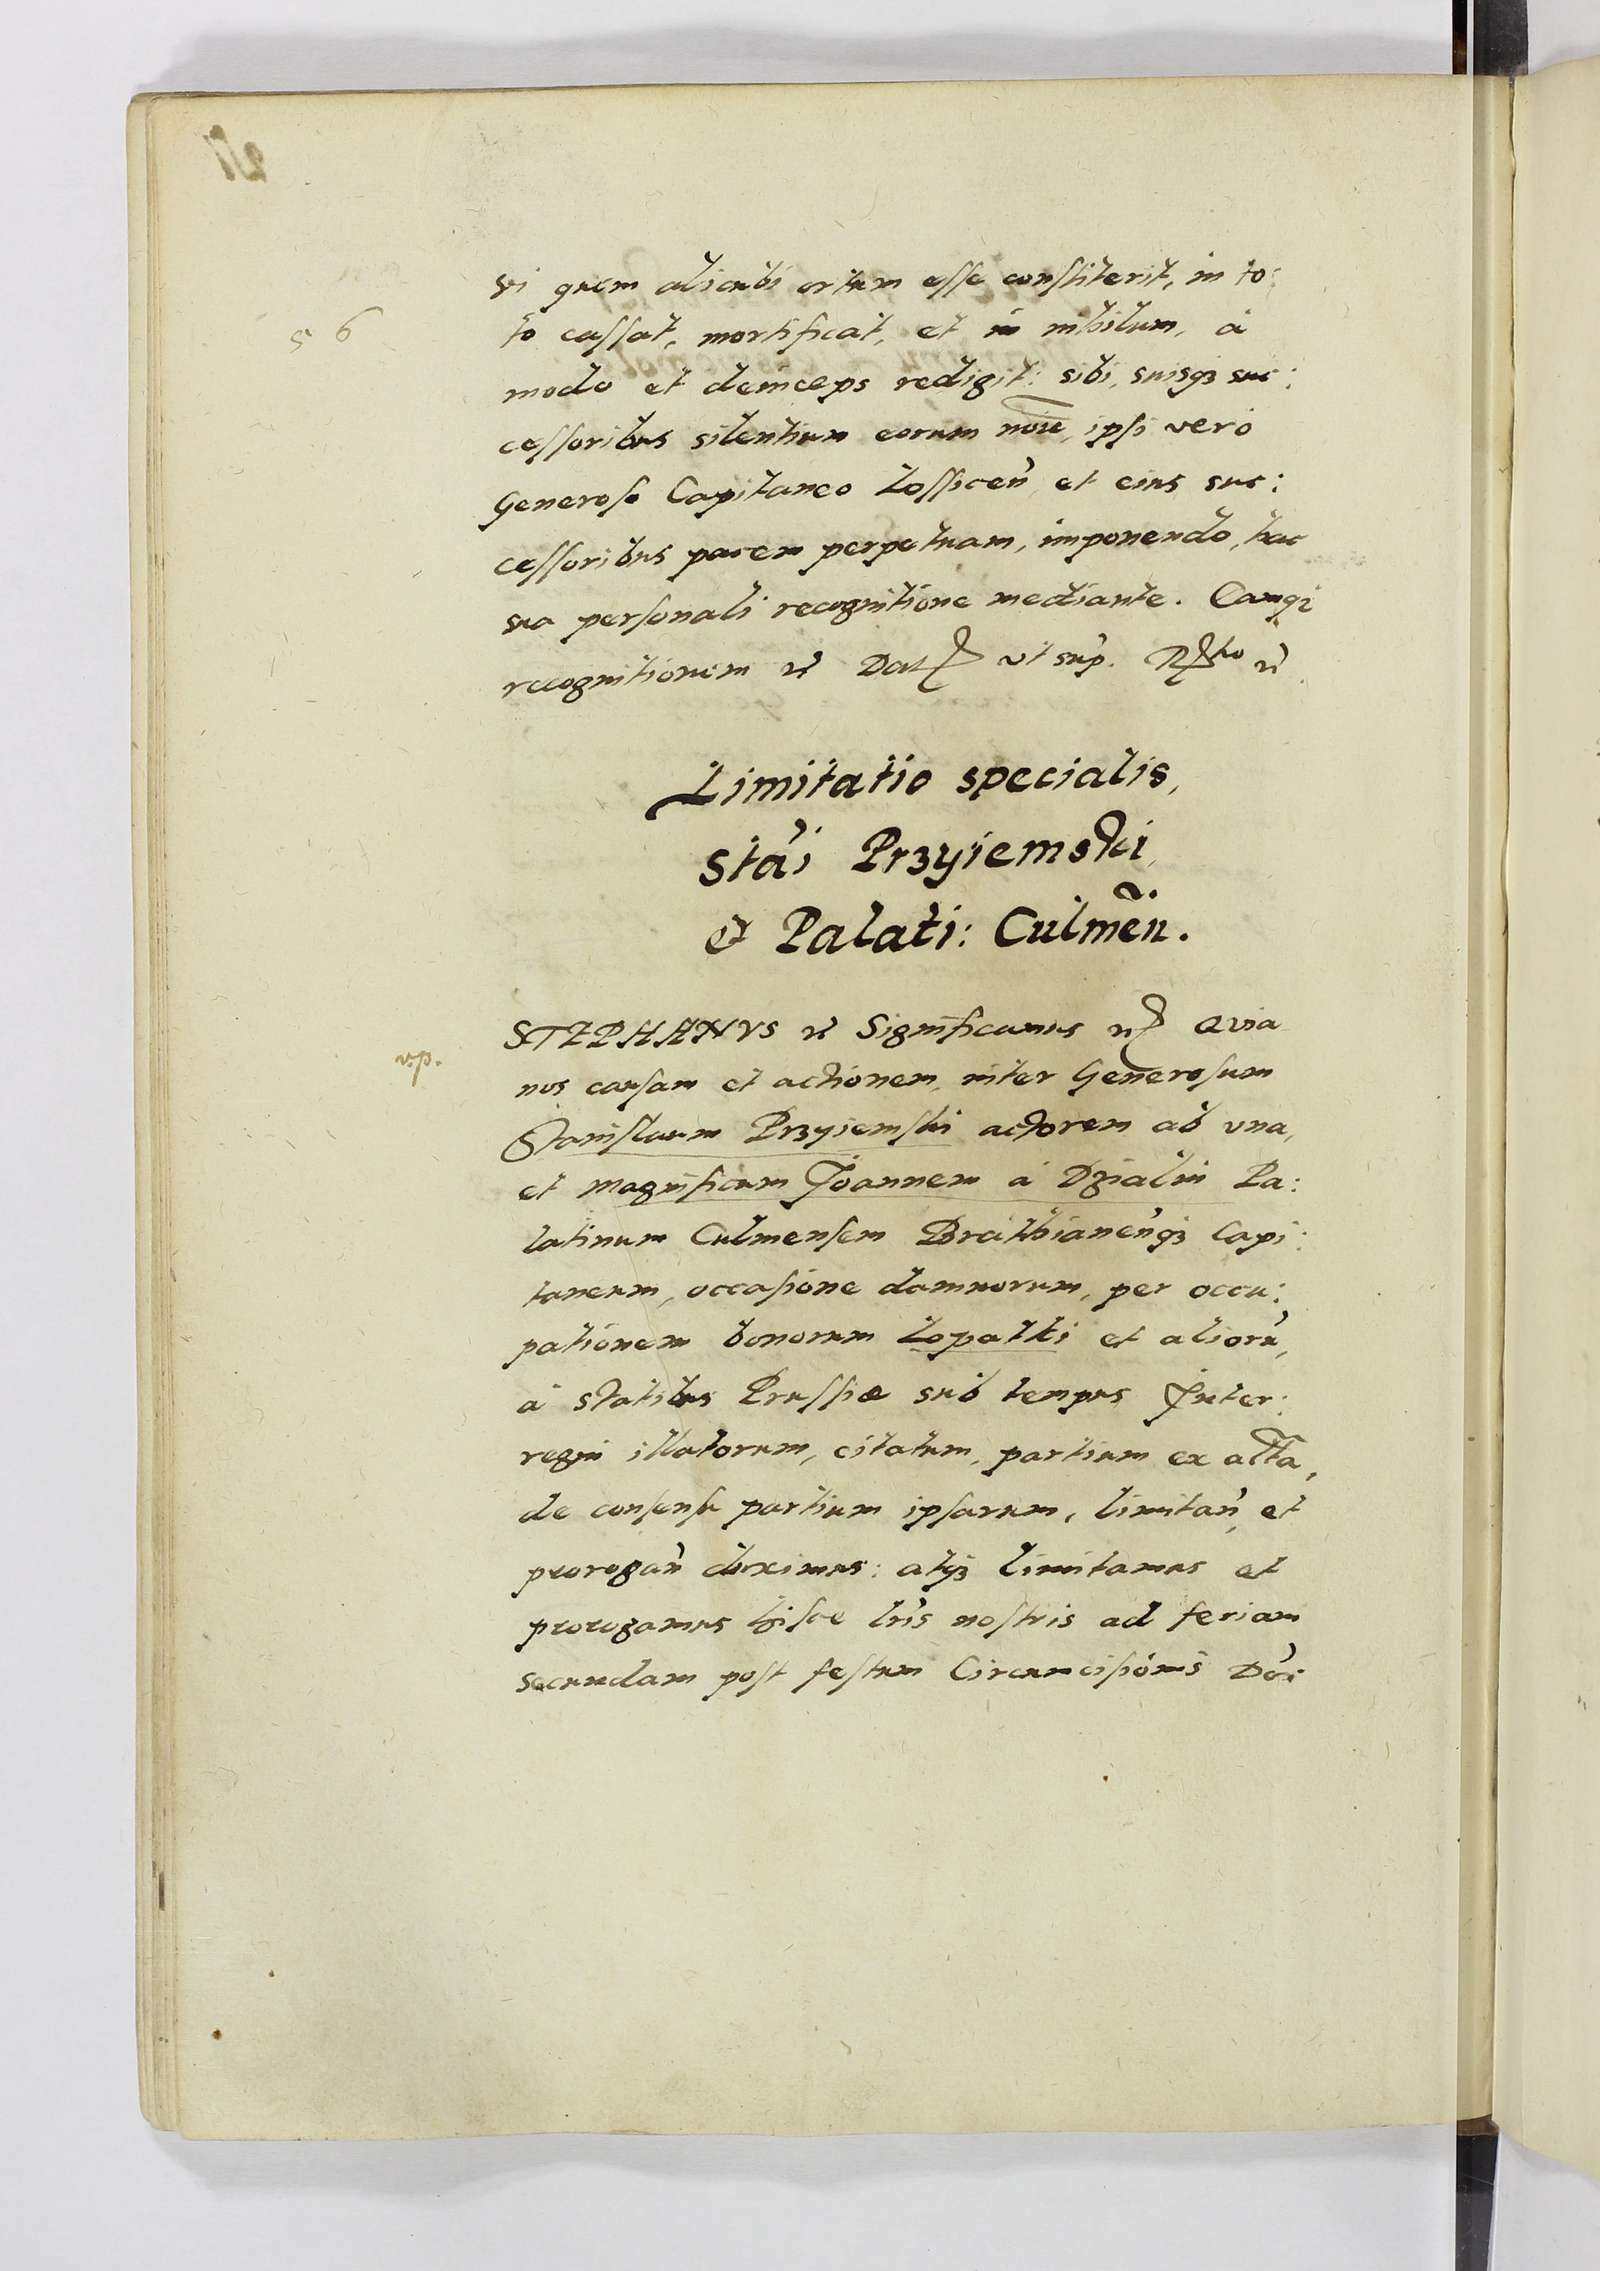 56
si quem alicubi ortum esse constiterit, in to:
to cassat, mortificat, et in nihilum, à
modo et deinceps redigit: sibi, suisq3 suc:
cessoribus silentium eorum noie, ipsi verò
Generoso Capitaneo Lossiceñ et eius suc:
cessoribus pacem perpetuam, imponendo, hac
sua personali recognitione mediante. Camqz
recognitionem etc Dat vt sup.
Limitatio specialis,
Stai Przyiemski,
et Palati: Culmeñ.
STEPHANVS etc Significamus etc Quia
v.p.
nos causam et actionem, inter Generosum
Stanislaum Przyiemski actorem ab vna,
et magnificum Joannem à Dzialin Pa:
latinum Culmensem Brathianeñq3 Capi:
taneum, occasione damnorum, per occu:
pationem bonorum Lopatki et alioru,
à statibus Prussiæ sub tempus Inter:
regni illatorum, citatum, partium ex alta,
de consensu partium ipsarum, limitañ et
prorogañ duximus: atq3 limitamus et
prorogamus hisce lris nostris ad feriam
secundam post festum Circumcisionis Do: